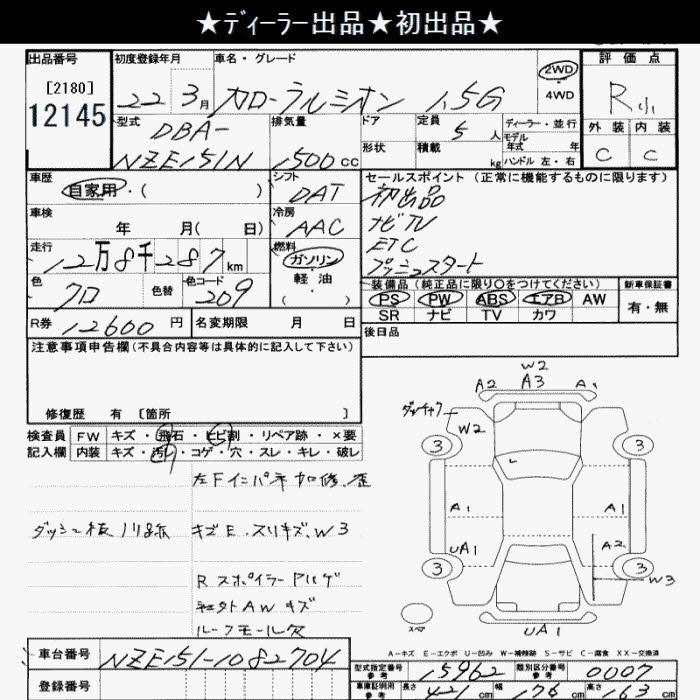 ★ディーラー出品★初出品★
出品番号
[2180]
12145
初度登録年月
22 3月
車名・グレード
カローラルミオン 1.5G
2WD
・
4WD
評価点
R
外装 内装
C C
型式
DBA-
NZE151N
排気量
1500cc
ドア
形状
定員
5人
積載
kg
ディーラー・並行
モデル
年式 年
ハンドル 左・右
車歴
自家用・( )
シフト
DAT
セールスポイント(正常に機能するものに限ります)
初出品
ナビTV
ETC
プッシュスタート
車検
年 月( 日)
冷房
AAC
走行
12万8千287km
燃料
ガソリン
・
軽油
( ・ )
色
クロ
色替
色コード
209
装備品(純正品に限り○をつけてください)
PS PW ABS エアB AW
SR ナビ TV カワ
新車保証書
有・無
R券
12600円
名変期限 月 日
後日品
注意事項申告欄(不具合内容等は具体的に記入して下さい)
修復歴 有 [箇所 ]
検査員
記入欄
FW キズ・飛石・ヒビ割・リペア跡・×要
内装 キズ・汚れ・コゲ・穴・スレ・キレ・破レ
左Fインパネ加修、歪
ダッシュ板ノリ跡
キズE.スリキズ、W3
Rスポイラー Pハゲ
社外AWキズ
ルーフモール欠
W2
A2 A3 A1
W2
3 3
A1 A1
UA1 A2
3 3
W3
スペア
UA1
A−キズ E−エクボ U−凹み W−補修跡 S−サビ C−腐食 XX−交換済
車台番号
NZE151-1082704
登録番号
型式指定番号
参考
15962
類別区分番号
参考
0007
車庫証明用
参考
長さ 421cm 幅 176cm 高さ 163cm